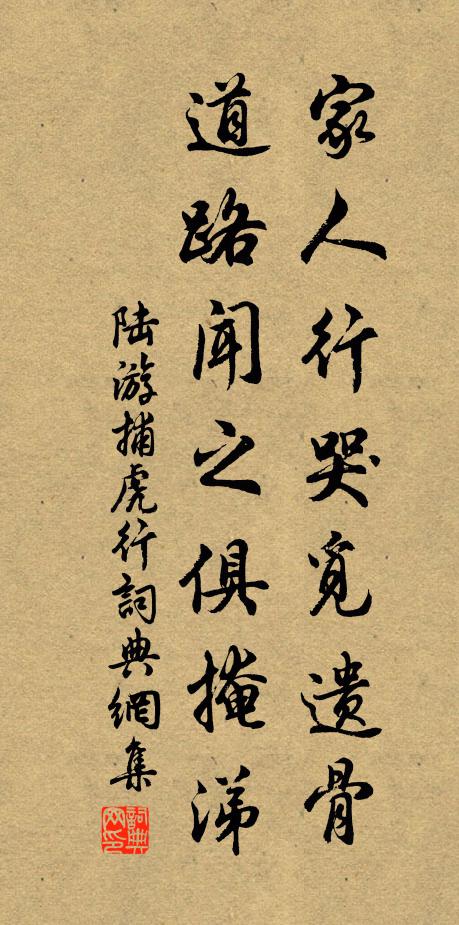 家人行哭觅遗骨
道路闻之俱掩涕
陆游捕虎行词典網集
词典网印